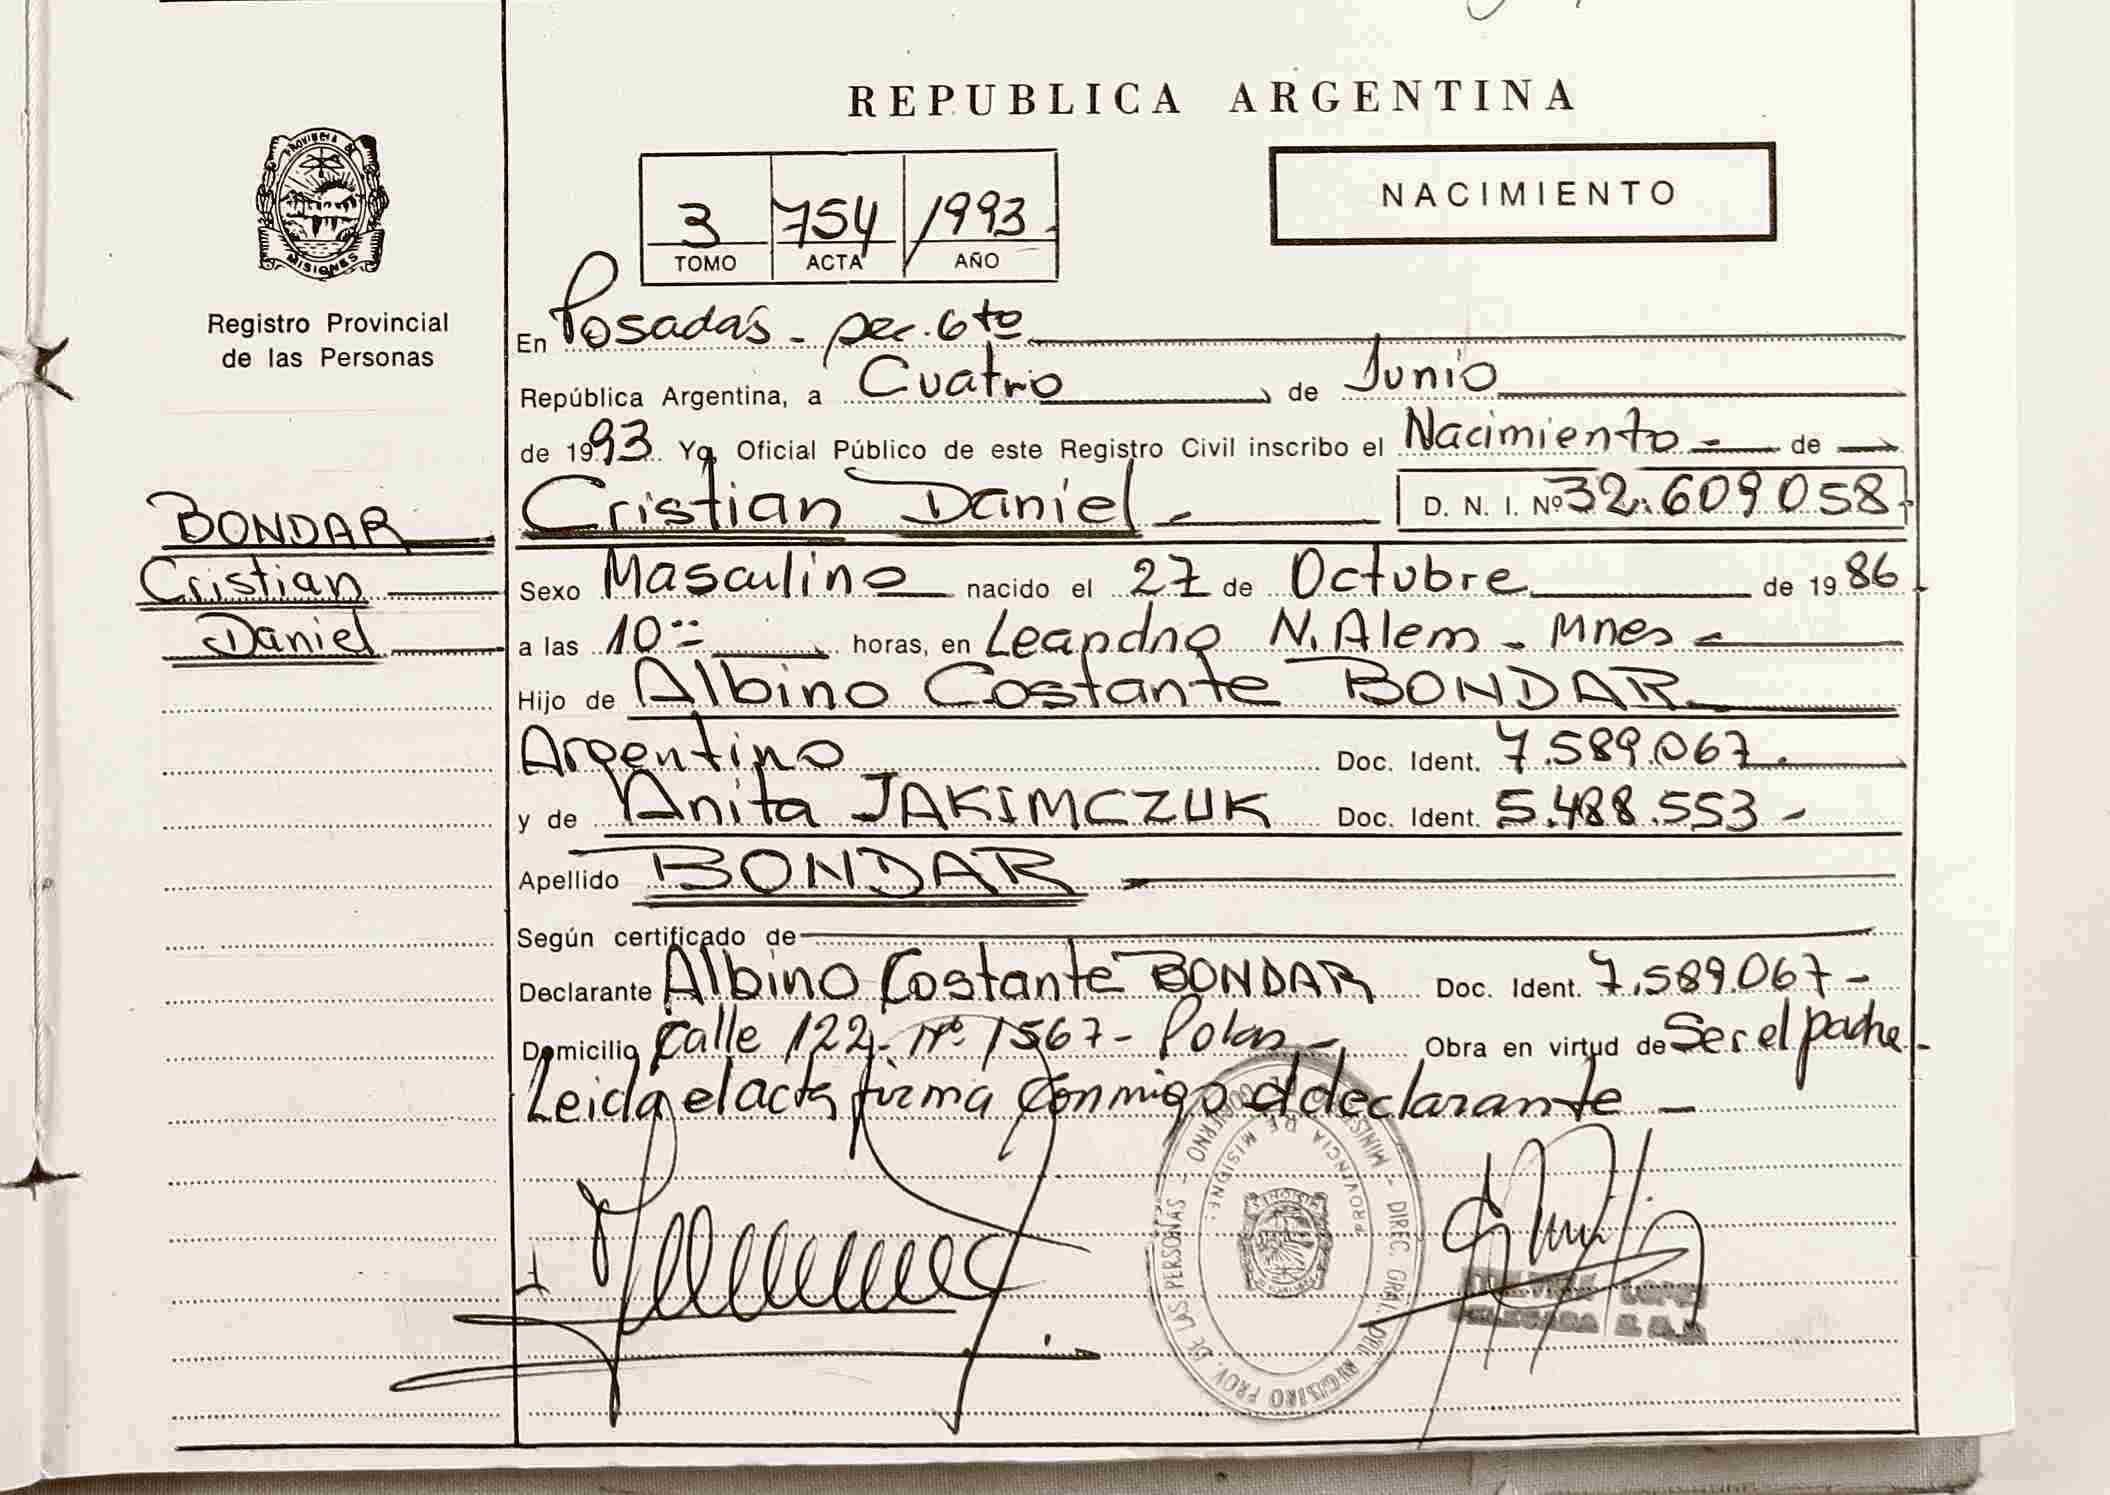 REPUBLICA ARGENTINA
NACIMIENTO
3 754 1993
TOMO ACTA AÑO
PROVINCIA DE
MISIONES
Registro Provincial
de las Personas
BONDAR
Cristian
Daniel
En Posadas - sec. 6to
República Argentina, a Cuatro de Junio
de 1993. Yo, Oficial Público de este Registro Civil inscribo el Nacimiento - de
Cristian Daniel - D. N. I. Nº 32.609058
Sexo Masculino nacido el 27 de Octubre de 1986
a las 10 horas, en Leandro N. Alem - Mnes -
Hijo de Albino Costante BONDAR
Argentino Doc. Ident. 7.589.067.
y de Anita JAKIMCZUK Doc. Ident. 5.488.553 -
Apellido BONDAR
Según certificado de
Declarante Albino Costante BONDAR Doc. Ident. 7.589.067 -
Domicilio Calle 122 - Nº 1567 - Obra en virtud de Ser el padre -
Leida el acta firma conmigo el declarante -
MINISTERIO DE GOBIERNO - DIREC. GRAL. DEL REGISTRO PROV. DE LAS PERSONAS -
PROVINCIA DE MISIONES
LOPEZ
DELEGADA